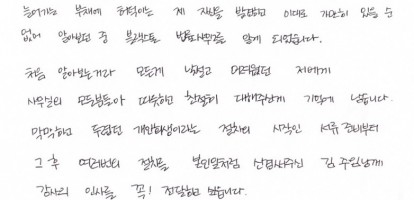 늘어가는 부채에 허덕이는 제 자신을 발견하고 이대로 가만히 있을 순
없어 알아보던 중 법률사무소를 알게 되었습니다.
처음 알아보는거라 모든게 낯설고 어려웠던 저에게
사무실의 모든분들이 따뜻하고 친절히 대해주신게 기억에 남습니다.
막막하고 두렵던 개인회생이라는 절차의 시작인 서류 준비부터
그 후 여러번의 절차를 본인일처럼 난경사주신 김 주임님께
감사의 인사를 꼭! 전달하고 싶습니다.